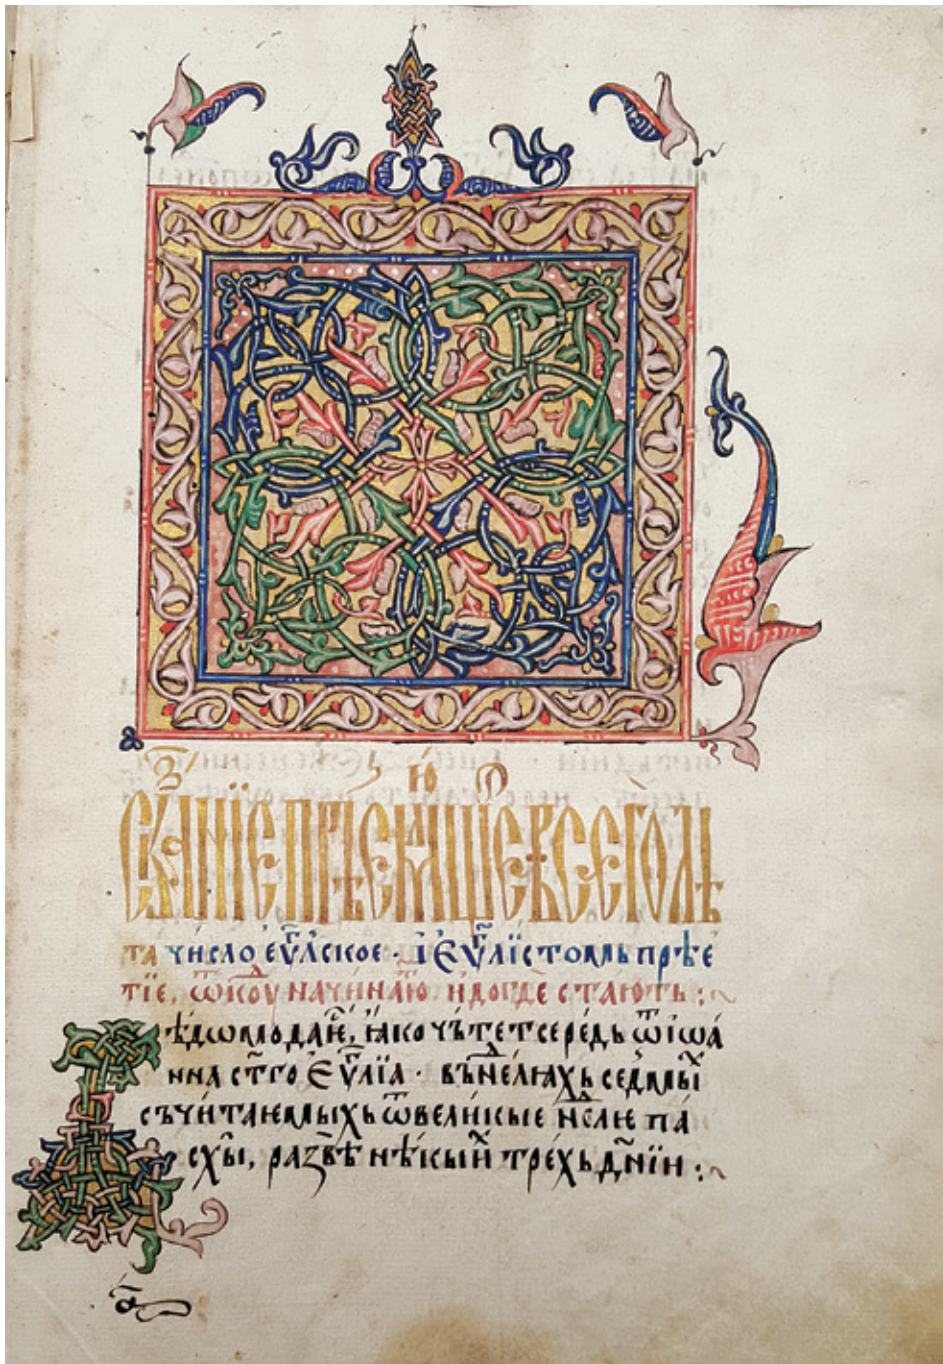 Сказанїе прїемлющее всего лѣ
та число еѵⷢ҇лское · і Еѵⷢ҇лїстомь прѣе
тїе, ѿкоуⷣ начинаю и догде стають :~
Вѣдѡмо да є҆, ꙗко чътетсе редь ѿ іѡа
нна ст҃го Еѵⷢ҇лїа · въ неⷣлꙗхь седмыⷯ
съчитаемыхь ѿ великые неⷣлѥ па
схы, развѣ нѣкыиⷯ трехь дн҃їи :~
а҃